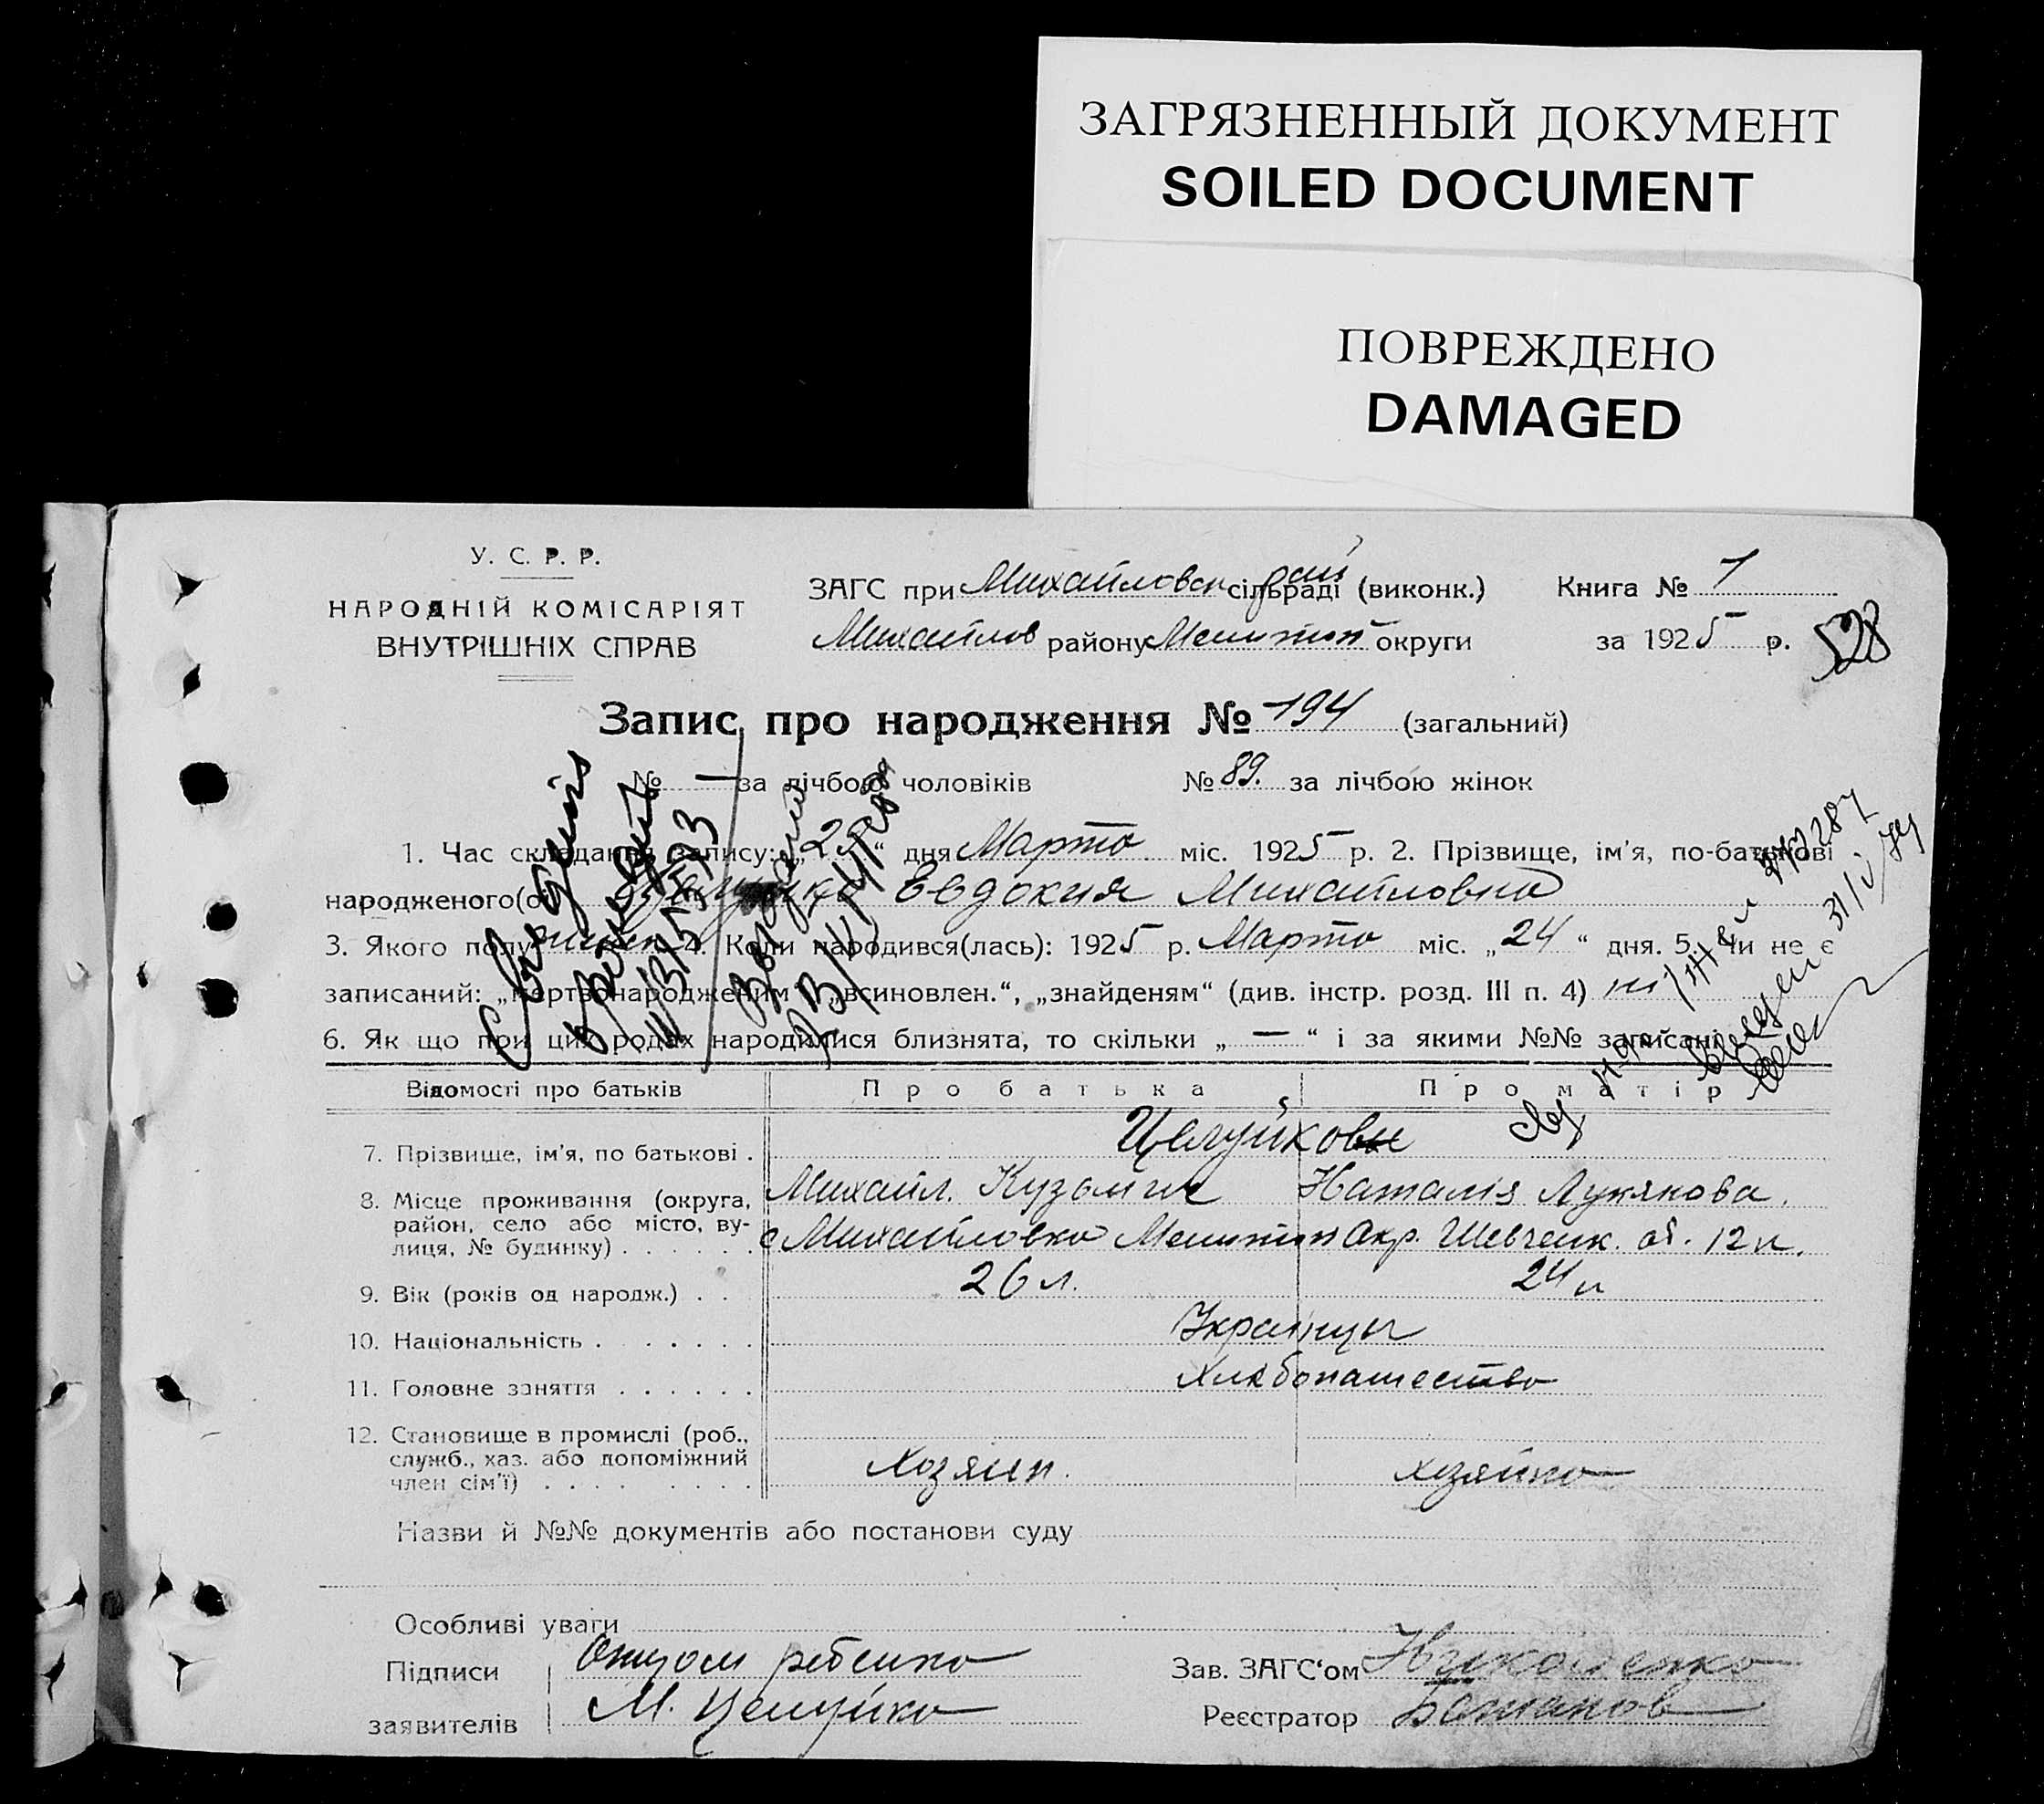 ЗАГРЯЗНЕННЫЙ ДОКУМЕНТ
SOILED DOCUMENT
ПОВРЕЖДЕНО
DAMAGED
У. С. Р. Р.
НАРОДНІЙ КОМІСАРІЯТ
ВНУТРІШНІХ СПРАВ
ЗАГС при Михайловск рай сільраді (виконк.) Книга № 1
Михайлов району Мелитоп округи за 1925 р.
528
Запис про народження № 194 (загальний)
№ — за лічбою чоловіків № 89. за лічбою жінок
1. Час складання запису: „29“ дня Марта міс. 1925 р. 2. Прізвище, ім'я, по-батькові
народженого(о Евдокия Михайловна
3. Якого полу 4. Коли народився(лась): 1925 р. Марта міс. „24“ дня. 5. Чи не є
записаний: „мертвонародженим“, „всиновлен.“, „знайденям“ (див. інстр. розд. III п. 4)
6. Як що при цих родах народилися близнята, то скільки „—“ і за якими №№ записані
Відомості про батьків Про батька Про матір
7. Прізвище, ім'я, по батькові . Целуйковы
8. Місце проживання (округа, Михайл. Кузьмич Наталія Лукянова.
район, село або місто, ву-
лиця, № будинку) . . . . . . с Михайловка Мелитоп Окр. Шевченк. 12
9. Вік (років од народж.) . . 26 л. 24 л
10. Національність . . . . . . Украинцы
11. Головне заняття . . . . . . Хлебопашество
12. Становище в промислі (роб.,
служб., хаз. або допоміжний
член сім'ї) . . . . . . . . Хозяин. хозяйка
Назви й №№ документів або постанови суду
Особливі уваги
Підписи Отцом ребенка Зав. ЗАГС‘ом
заявителів М. Целуйко Реєстратор